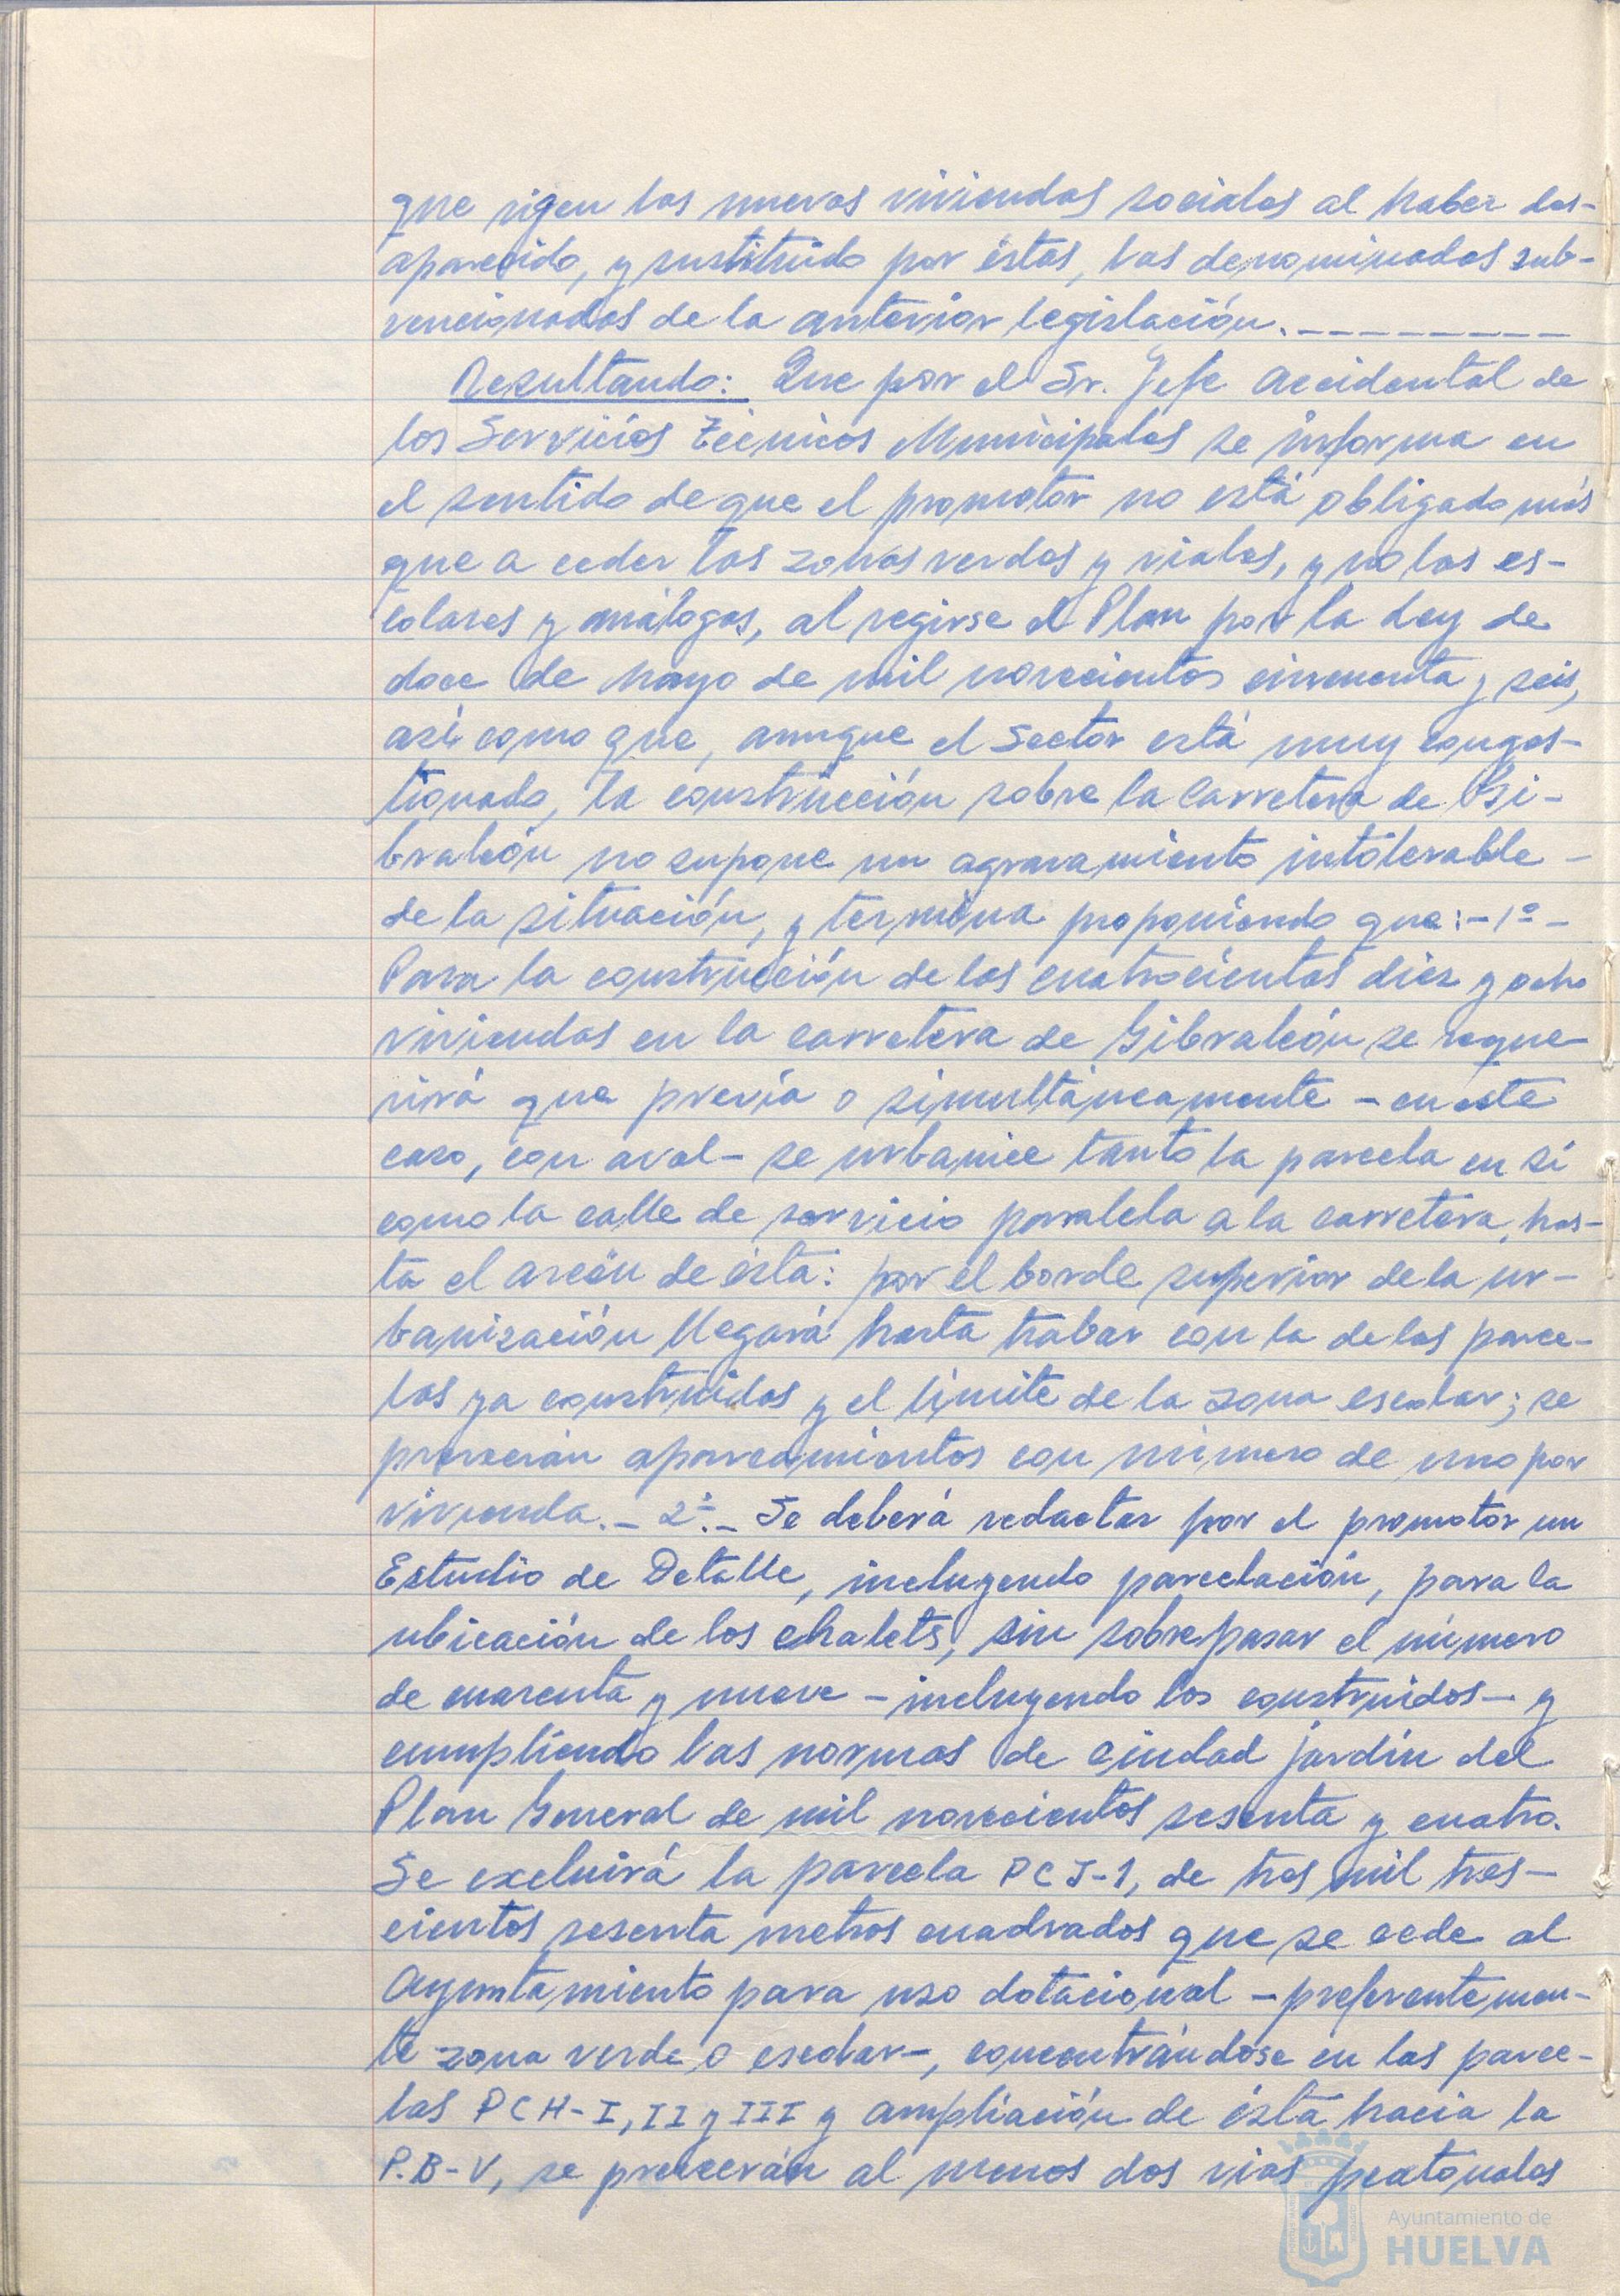 que rigen las nuevas viviendas sociales al haber des-
aparecido, y sustituído por éstas, las denominadas sub-
vencionadas de la anterior legislación.
Resultando: Que por el Sr. Jefe Accidental de
los Servicios Técnicos Municipales se informa en
el sentido de que el promotor no está obligado más
que a ceder las zonas verdes y viales, y no las es-
colares y análogas, al regirse el Plan por la Ley de
doce de mayo de mil novecientos cincuenta y seis,
así como que, aunque el Sector está muy conges-
tionado, la construcción sobre la Carretera de Gi-
braleón no supone un agravamiento intolerable -
de la situación, y termina proponiendo que: - 1º -
Para la construcción de las cuatrocientas diez y ocho
viviendas en la carretera de Gibraleón se reque-
rirá que previa o simultáneamente - en este
caso, con aval - se urbanice tanto la parcela en sí
como la calle de servicio paralela a la carretera, has-
ta el arcén de ésta: por el borde superior de la ur-
banización llegará hasta trabar con la de las parce-
las ya construidas y el límite de la zona escolar; se
preveerán aparcamientos con número de uno por
vivienda. - 2º. - Se deberá redactar por el promotor un
Estudio de Detalle, incluyendo parcelación, para la
ubicación de los chalets, sin sobrepasar el número
de cuarenta y nueve - incluyendo los construidos - y
cumpliendo las normas de ciudad jardín del
Plan General de mil novecientos sesenta y cuatro.
Se excluirá la parcela PCJ-1, de tres mil tres-
cientos sesenta metros cuadrados que se cede al
Ayuntamiento para uso dotacional - preferentemen-
te zona verde o escolar -, concentrándose en las parce-
las PCH-I, II y III y ampliación de ésta hacia la
P.B-V, se preveerán al menos dos vías peatonales
Ayuntamiento de
HUELVA